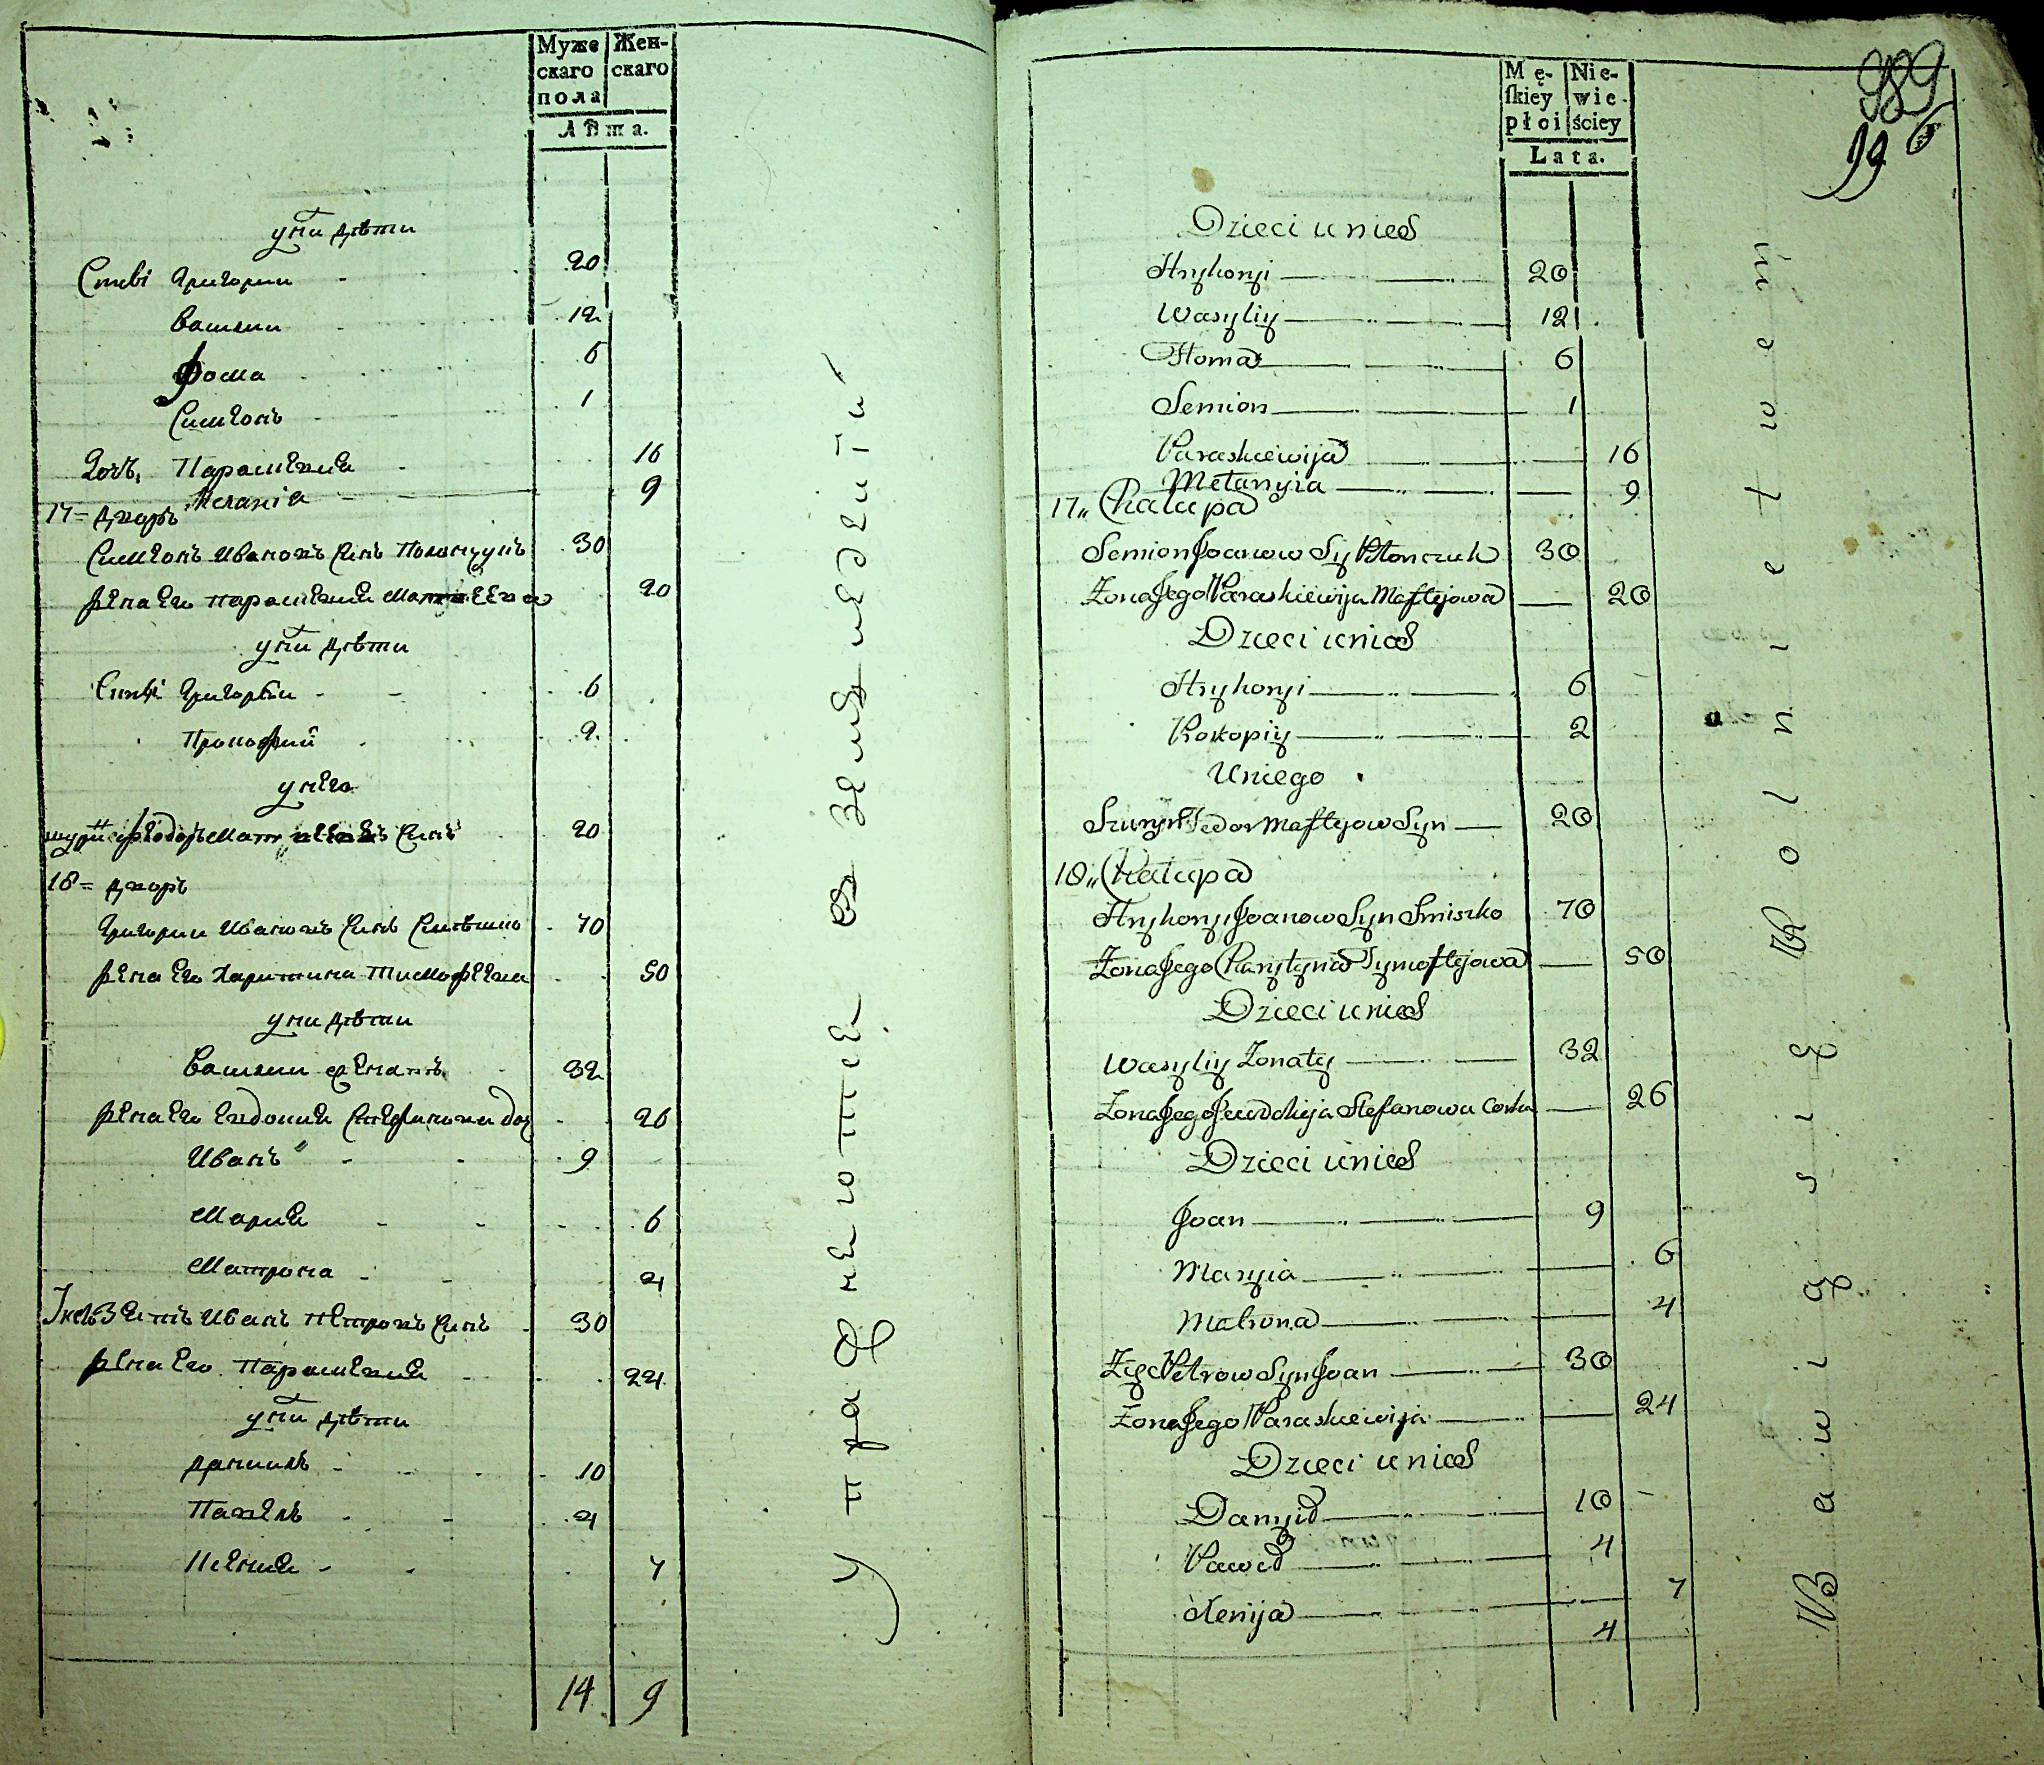 Муже Жен-
скаго скаго
пола
Лѣта.
у нихъ дѣти
Синове Григории 20
Василии 12
Фома 6
Симеонъ 1
Дочь, Параскевия 16
Мелания 9
17 = дворъ
Симеонъ Ивановъ Синъ 30
Жена Его Параскевия 20
у нихъ дѣти
Синове Григории 6
Прокофий 2
у него
Федоръ Синъ 20
18 = дворъ
Григории Ивановъ Синъ 70
Жена Его Харитина Тимофеева 50
у нихъ дѣти
Василии женатъ 32
Жена Его Евдокия Стефанова доч 26
Иванъ 9
Мария 6
Матрона 4
Зять Иванъ Петровъ Синъ 30
Жена Его Параскевия 24
у нихъ дѣти
Даниилъ 10
Павелъ 4
Ксения 7
14 9
упражнеются в земледелии
Mę- Nie-
ſkiey wie-
płci ściey
Lata.
389
196
Dzieci u nich
Hryhoryi 20
Wasyliy 12
Homa 6
Semion 1
Paraskiewija 16
Metanyia 9
17„ Chalupa
Semion Joanow Sy 30
Żona Jego Paraskiewija Maftejowa 20
Dzieci u nich
Hryhoryi 6
Prokopiy 2
U niego
Szuryn Fedor Maftejow Syn 20
18„ Chalupa
Hryhoryi Joanow Syn Smiszko 70
Żona Jego Charytyna Tymoftejowa 50
Dzieci u nich
Wasyliy Żonaty 32
Żona Jego Jewdokija Stefanowa Corka 26
Dzieci u nich
Joan 9
Maryia 6
Matrona 4
Zięc Petrow Syn Joan 30
Żona Jego Paraskiewija 24
Dzieci u nich
Danyił 10
Paweł 4
Xenija 7
4
Bawią się Rolnictwem